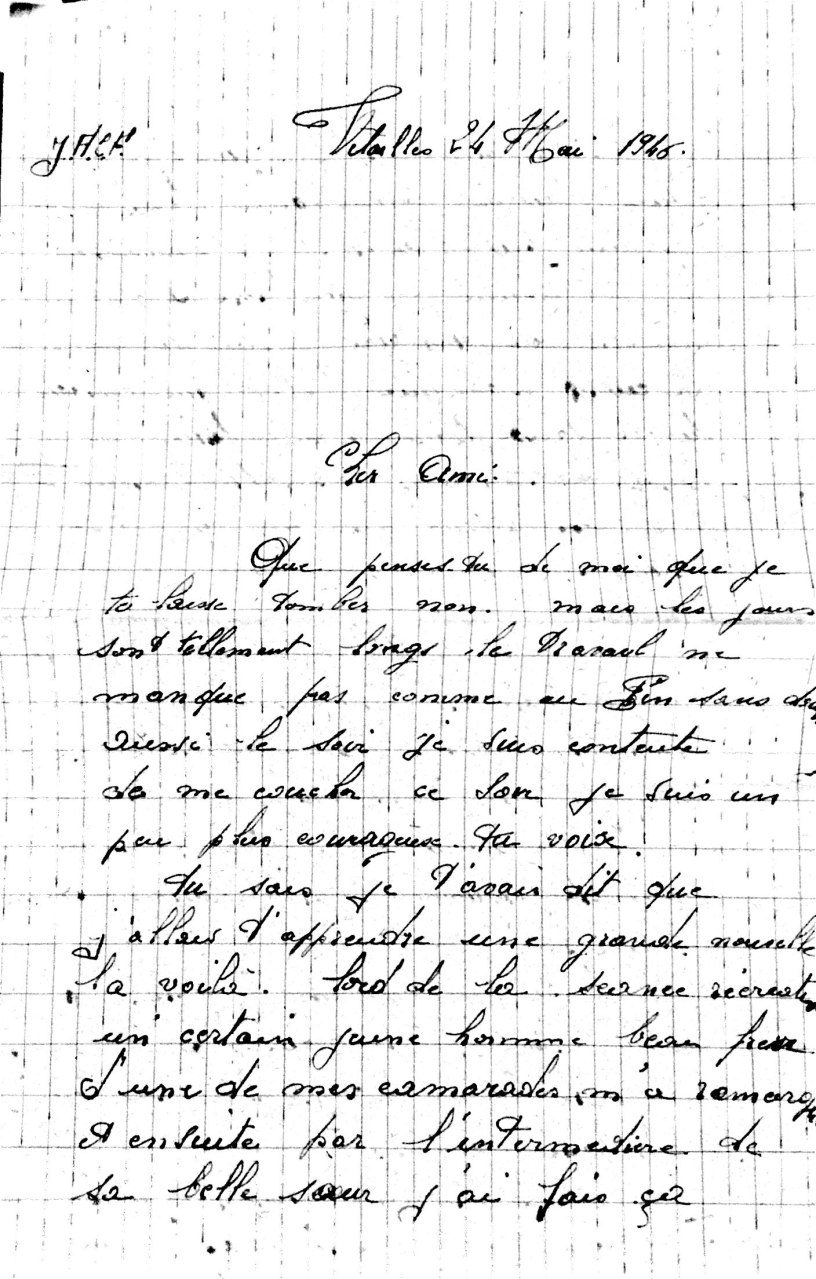 J.A.C.F. Vitailles 24 Mai 1946.
Cher Ami.
Que penses-tu de moi que je
te laisse tomber non. mais les jours
sont tellement longs le travail ne
manque pas comme au Pin sans
aussi le soir je suis contente
de me coucher ce soir je suis un
peu plus courageuse tu vois.
tu sais je t'avais dit que
j'allais t'apprendre une grande nouvelle
la voilà. lord de la seance
un certain jeune homme beau frere
d'une de mes camarades m'a
et ensuite par l'intermediere de
sa belle sœur j'ai fais ça